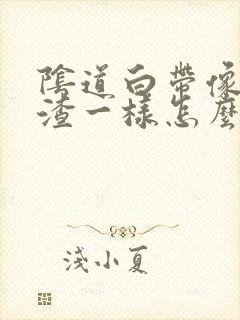 陰道白帶像
渣一樣怎麼
淺小夏